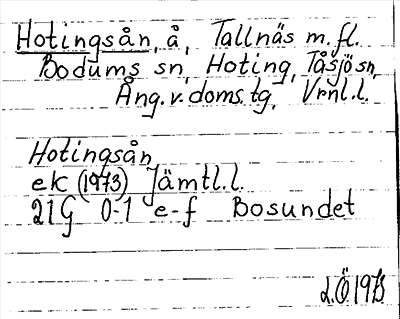 Hotingsån, å, Tallnäs m.fl.
Bodums sn, Hoting, Tåsjö sn,
Ång.v.doms.tg, Vrnl.l.
Hotingsån
ek (1973) Jämtl.l.
21G 0-1 e-f Bosundet
L.Ö 1973